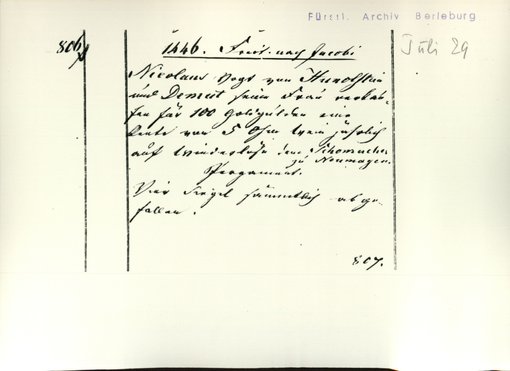 Fürstl. Archiv Berleburg
806
1446. Freit. nach Jacobi
Juli 29
Nicolaus Vogt von Hunolstein
und Demut seine Frau verkau-
fen für 100 Goldgulden eine
Rente von 5 Ohm Wein jährlich
auf Wiederlöse dem Schomecher
zu Neumagen.
Pergament.
Vier Siegel sämmtlich abge-
fallen.
807.